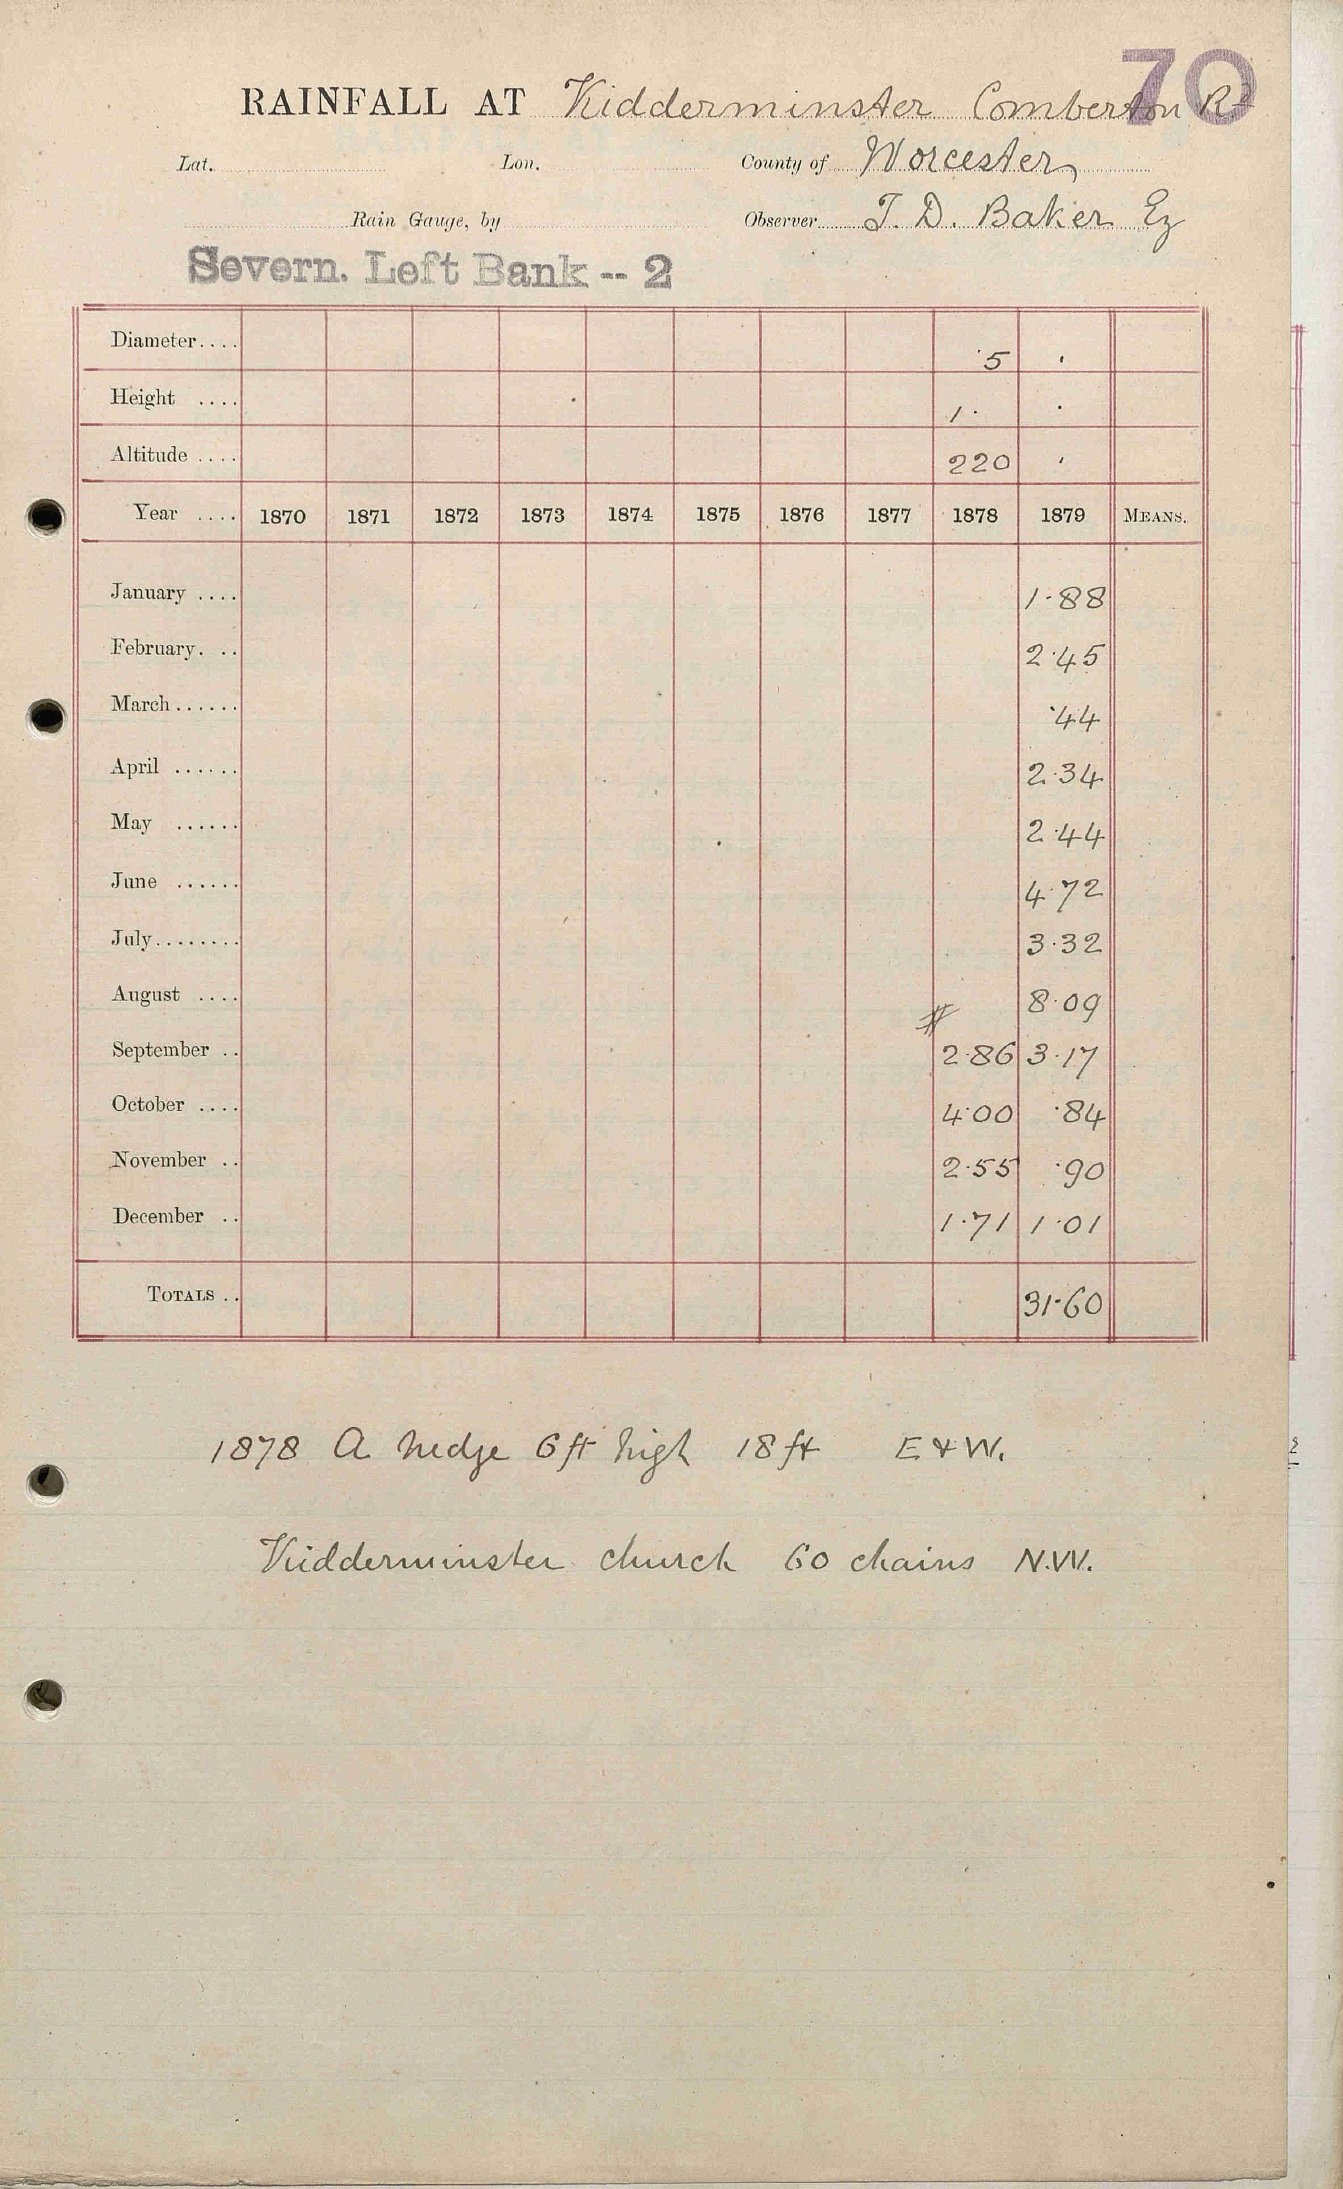 70
RAINFALL AT Kidderminster Comberton Rd
Lat. Lon. County of Worcester
Rain Gauge, by Observer T. D. Baker Eq
Severn. Left Bank -- 2
Diameter.... 5 '
Height .... 1· ·
Altitude .... 220 '
Year .... 1870 1871 1872 1873 1874 1875 1876 1877 1878 1879 MEANS.
January .... 1·88
February. .. 2·45
March...... ·44
April ...... 2·34
May ...... 2·44
June ...... 4·72
July........ 3·32
August .... 8·09
September .. 2·86 3·17
October .... 4·00 ·84
November .. 2·55 ·90
December .. 1·71 1·01
TOTALS .. 31·60
1878 A hedge 6 ft high 18 ft E & W.
Kidderminster church 60 chains N.W.